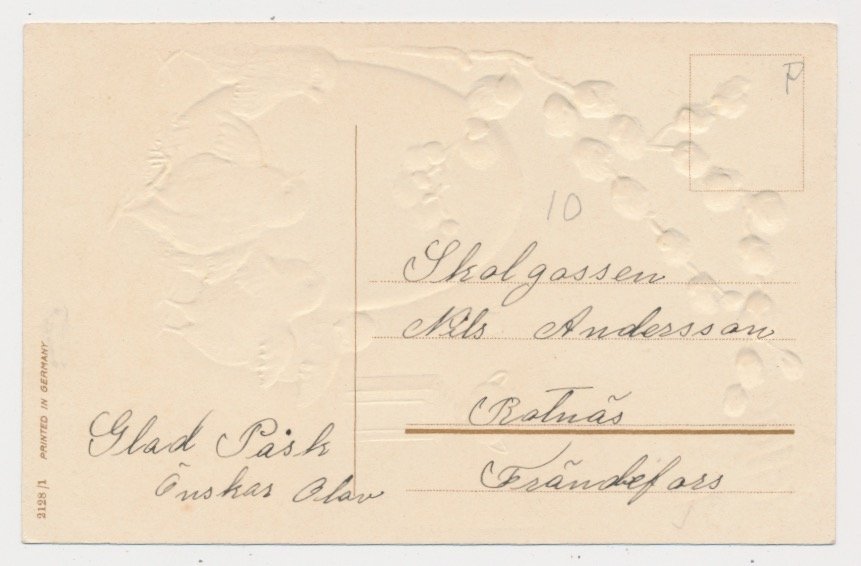 P
10
Skolgossen
Nils Andersson
Rotnäs
Frändefors
Glad Påsk
Önskar Olav
2128/1 PRINTED IN GERMANY